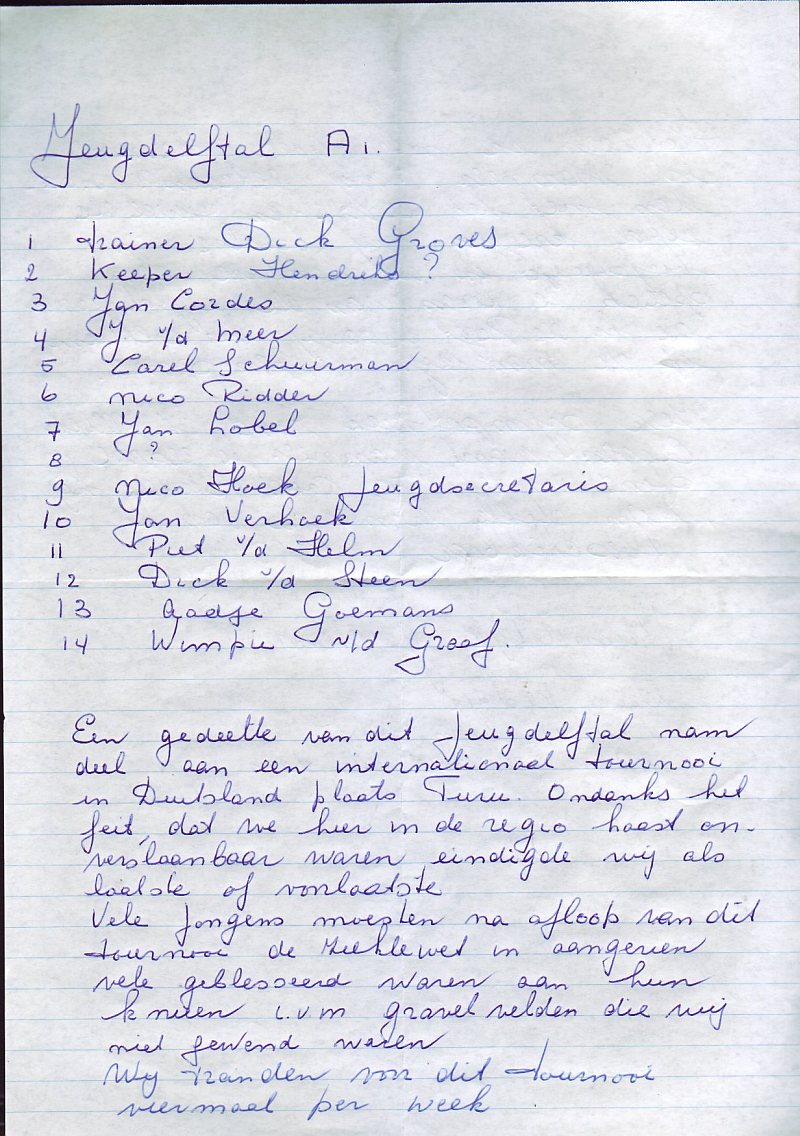 Jeugdelftal A1.
1 trainer Dick Groves
2 Keeper Hendriks ?
3 Jan Cordes
4 J v/d Meer
5 Carel Schuurman
6 Nico Ridder
7 Jan Lobel
8 ?
9 Nico Hoek Jeugdsecretaris
10 Jan Verhoek
11 Piet v/d Helm
12 Dick v/d Steen
13 Aadje Goemans
14 Wimpie v/d Graaf.
Een gedeelte van dit Jeugdelftal nam
deel aan een internationaal tournooi
in Duitsland plaats Turu. Ondanks het
feit, dat we hier in de regio haast on-
verslaanbaar waren eindigde wij als
laatste of voorlaatste
Vele jongens moesten na afloop van dit
tournooi de ziektewet in aangezien
vele geblesseerd waren aan hun
knieen i.v.m gravel velden die wij
niet gewend waren
Wij trainden voor dit tournooi
viermaal per week